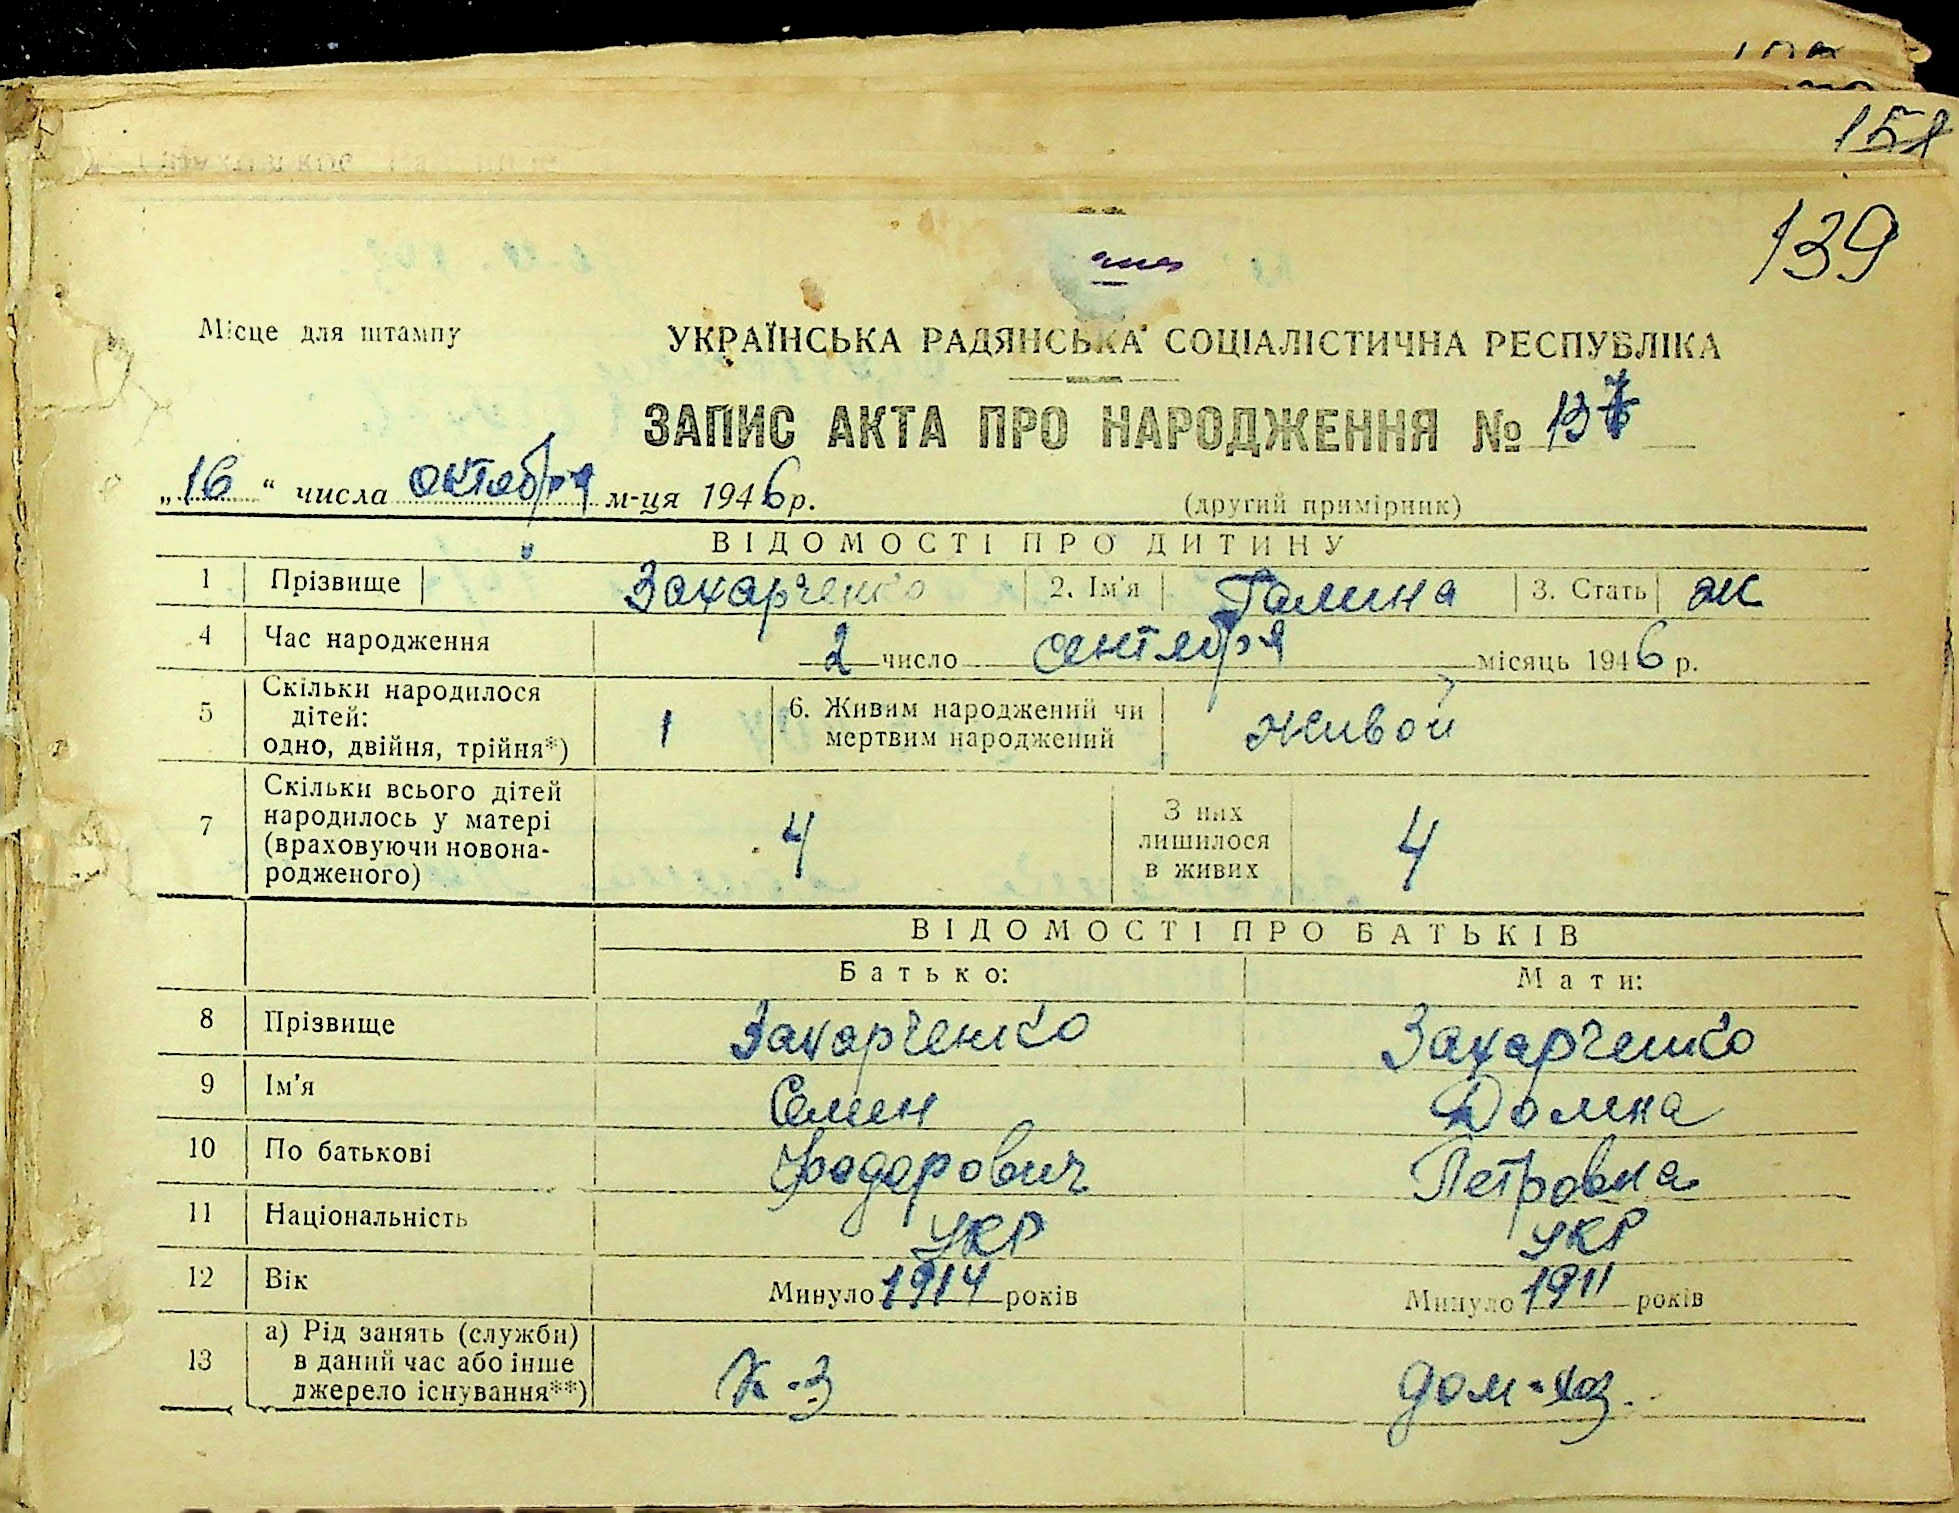 151
139
Місце для штампу
УКРАЇНСЬКА РАДЯНСЬКА СОЦІАЛІСТИЧНА РЕСПУБЛІКА
ЗАПИС АКТА ПРО НАРОДЖЕННЯ № 137
„16“ числа октября м-ця 1946 р.
(другий примірник)
ВІДОМОСТІ ПРО ДИТИНУ
1 Прізвище Захарченко 2. Ім'я Галина 3. Стать ж
4 Час народження 2 число сентября місяць 1946 р.
5 Скільки народилося
дітей:
одно, двійня, трійня*) 1 6. Живим народжений чи
мертвим народжений живой
7 Скільки всього дітей
народилось у матері
(враховуючи новона-
родженого) 4 З них
лишилося
в живих 4
ВІДОМОСТІ ПРО БАТЬКІВ
Батько: Мати:
8 Прізвище Захарченко Захарченко
9 Ім'я Семен Домна
10 По батькові Фодорович Петровна
11 Національність укр укр
12 Вік Минуло 1914 років Минуло 1911 років
13 а) Рід занять (служби)
в даний час або інше
джерело існування**) К-з дом-хоз.